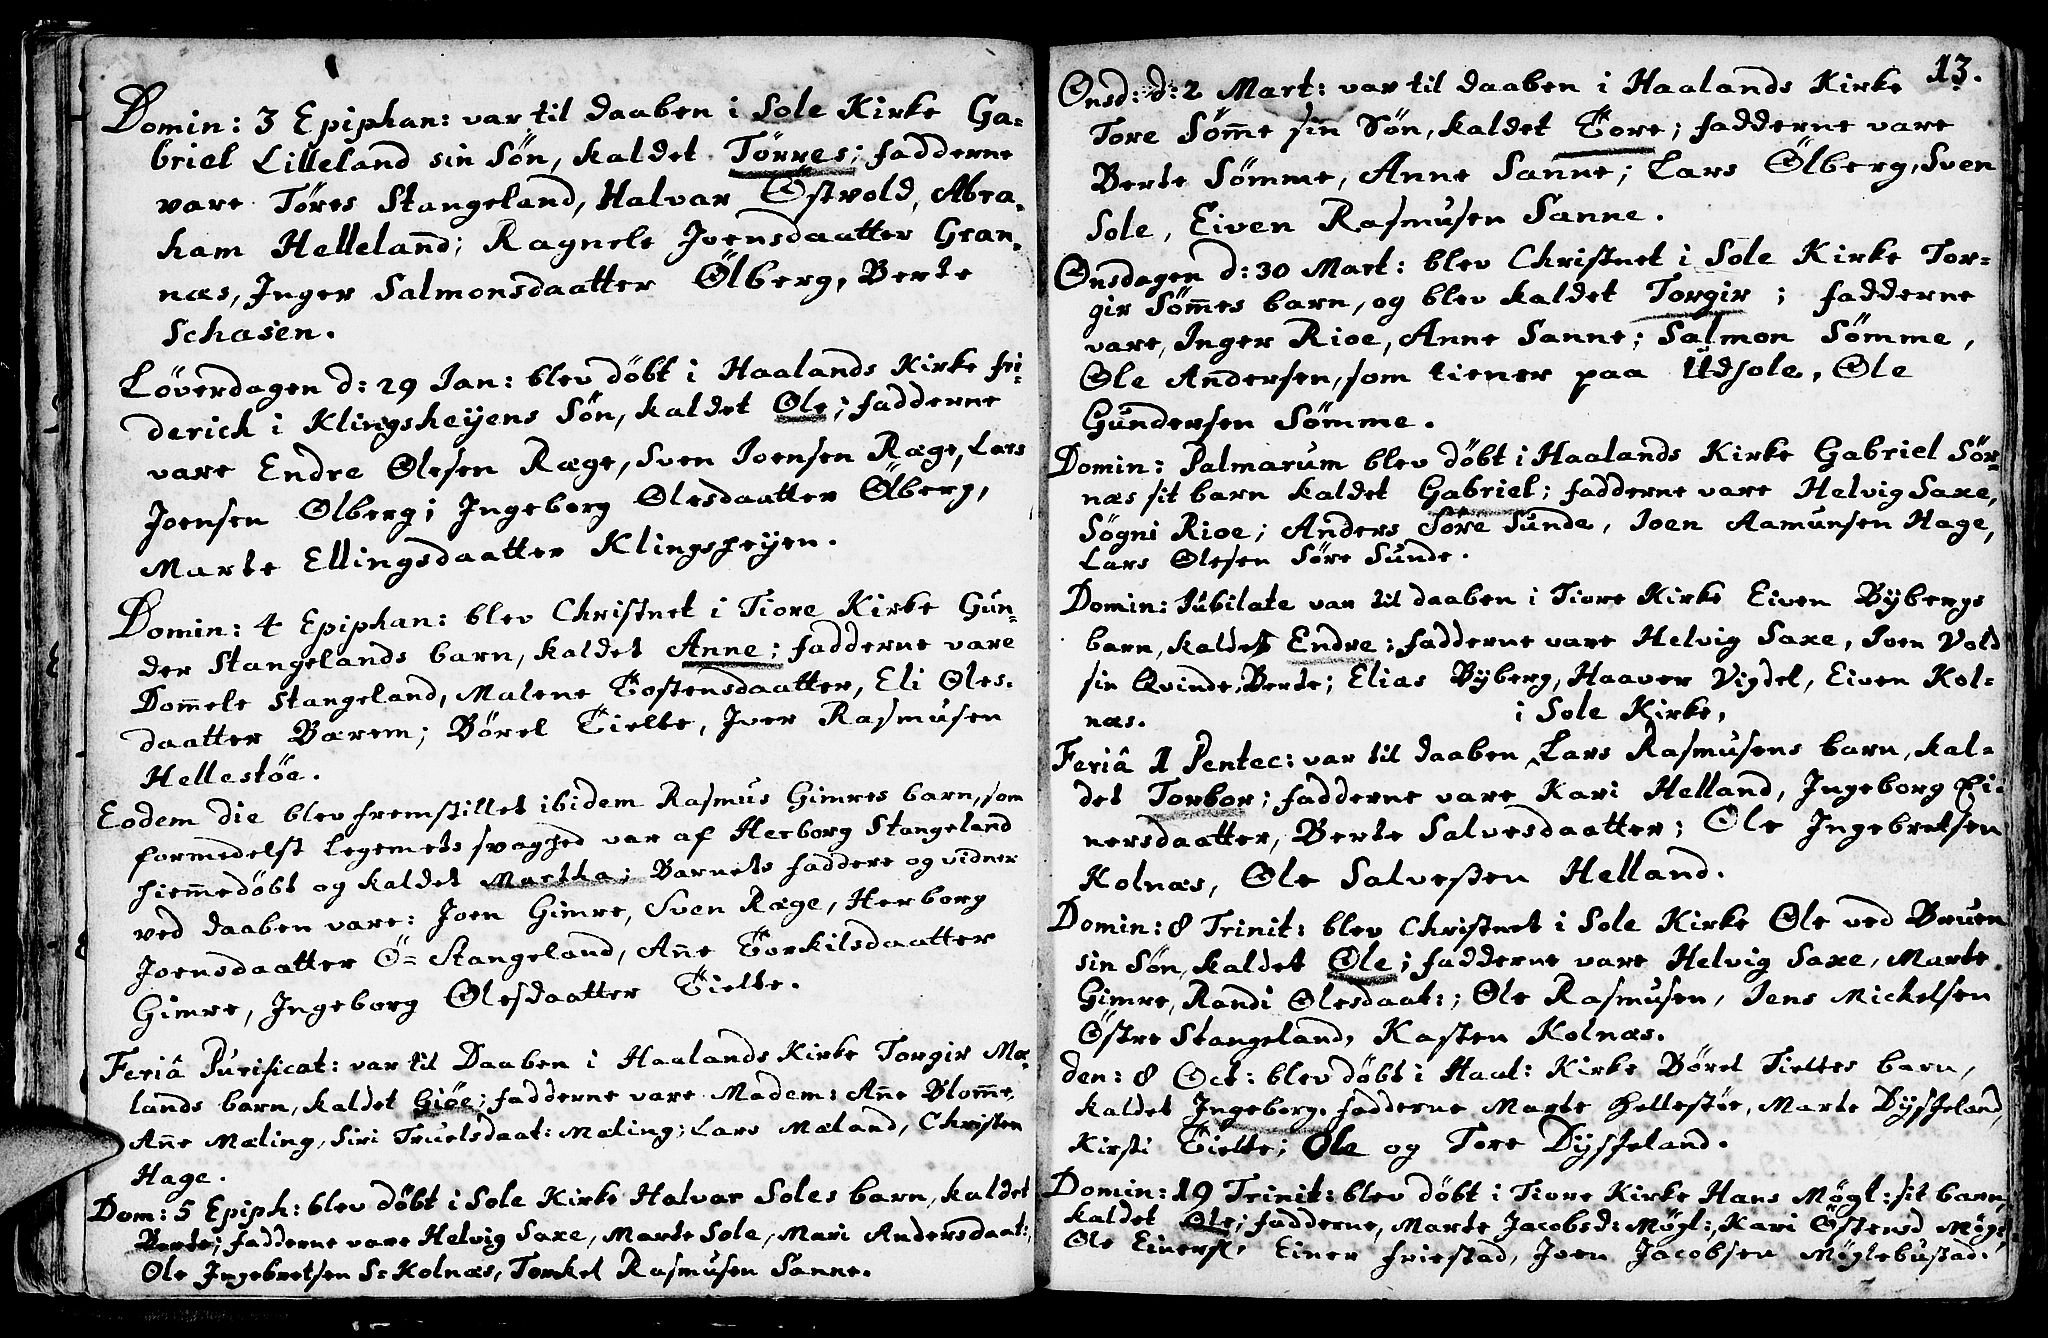 Domin: 3 Epiphan: var til daaben i Sole Kirke Ga=
briel Lilleland sin Sön, kaldet Törres; fadderne
vare Töres Stangeland, Halvar Östvold, Abra=
ham Helleland; Ragnele Joensdaatter Gran=
næs, Inger Salmonsdaatter Ölberg, Berte
Schasen.
Löverdagen d: 29 Jan: blev döbt i Haalands Kirke fri=
derich i Klingsheyens Sön, kaldet Ole; fadderne
vare Endre Olesen Ræge, Sven Joensen Ræge, Lars
Joensen Olberg; Ingeborg Olesdaatter Ölberg,
Marte Ellingsdaatter Klingsheyen.
Domin: 4 Epiphan: blev Christnet i Tiore Kirke Gun=
der Stangelands barn, kaldet Anne; fadderne vare
Dom̄ele Stangeland, Malene Tostensdaatter, Eli Oles=
daatter Bærem; Börel Tielte, Iver Rasmusen
Hellestöe.
Eodem die blev fremstillet ibidem Rasmus Gimres barn, som
formedelst legemets svaghed var af Herborg Stangeland
hiem̄edöbt og kaldet Martha; Barnets faddere og vidner
ved daaben vare: Joen Gimre, Sven Ræge, Herborg
Joensdaatter Ö= Stangeland, An̄e Torkilsdaatter
Gimre, Ingeborg Olesdaatter Tielte.
Feriâ Purificat: var til Daaben i Haalands Kirke Torgir Mæ=
lands barn, kaldet Giöe; fadderne vare Madem: An̄e Blom̄e,
An̄e Mæling, Siri Truelsdaat: Mæling; Lars Mæland, Christen
Hage.
Dom: 5 Epiph: blev döbt i Sole Kirke Halvar Soles barn, kaldet
Berte; fadderne vare Helvig Saxe, Marte Sole, Mari Andersdaat:,
Ole Ingebretsen S= Kolnæs, Torkel Rasmusen Sanne.
13.
Onsd: d: 2 Mart: var til daaben i Haalands Kirke
Tore Söm̄e sin Sön, kaldet Tore; fadderne vare
Berte Sömme, Anne Sanne; Lars Ölberg, Sven
Sole, Eiven Rasmusen Sanne.
Onsdagen d: 30 Mart: blev Christnet i Sole Kirke Tor=
gir Söm̄es barn, og blev kaldet Torgir; fadderne
vare, Inger Rioe, Anne Sanne; Salmon Sömme,
Ole Andersen, som tiener paa Udsole, Ole
Gundersen Sömme.
Domin: Palmarum blev döbt i Haalands Kirke Gabriel Sör=
næs sit barn kaldet Gabriel; fadderne vare Helvig Saxe,
Sögni Rioe; Anders Söre Sunde, Joen Aamunsen Hage,
Lars Olesen Söre Sunde.
Domin: Jubilate var til daaben i Tiore Kirke Eiven Bybergs
barn, kaldet Endre; fadderne vare Helvig Saxe, Joen Vold
sin Qvinde, Berte; Elias Byberg, Haaver Vigdel, Eiven Kol=
næs.
i Sole Kirke,
Feriâ 1 Pentec: var til daaben Lars Rasmusens barn, kal=
det Torbor; fadderne vare Kari Helland, Ingeborg Ei=
nersdaatter, Berte Salvesdaatter; Ole Ingebretsen
Kolnæs, Ole Salvesen Helland.
Domin: 8 Trinit: blev Christnet i Sole Kirke Ole ved Bruen
sin Sön, kaldet Ole; fadderne vare Helvig Saxe, Marte
Gimre, Randi Olesdaat:; Ole Rasmusen, Jens Mickelsen
Östre Stangeland, Kasten Kolnæs.
den: 8 Oct: blev döbt i Haal: Kirke Börel Tieltes barn,
kaldet Ingeborg. fadderne Marte Hellestöe, Marte Dysjeland,
Kirsti Tielte; Ole og Tore Dysjeland.
Domin: 19 Trinit: blev döbt i Tiore Kirke Hans Mögl: sit barn,
kaldet Ole; fadderne, Marte Jacobsd: Mögl:, Kari Östensd Mögl:
Ole Einers: Einer Friestad, Joen Jacobsen Möglebustad.